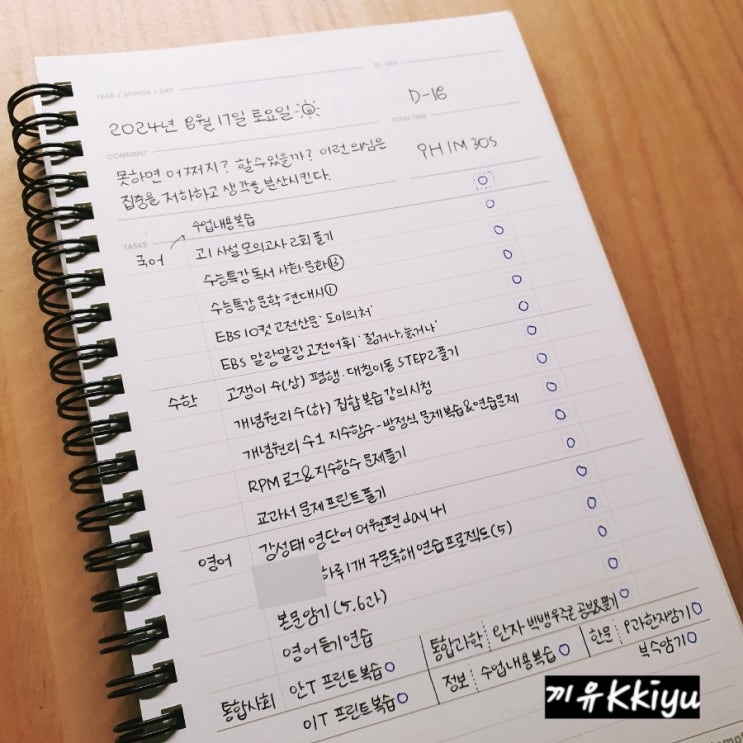 YEAR / MONTH / DAY
D-DAY
2024년 8월 17일 토요일
D-18
COMMENT
TOTAL TIME
못하면 어쩌지? 할 수 있을까? 이런 의심은
집중을 저하하고 생각을 분산시킨다.
9H 1M 30S
TASKS
수업 내용 복습
국어
고1 사설 모의고사 2회 풀기
수능특강 독서 사회·문화 ⑬
수능특강 문학 현대시 ①
EBS 10컷 고전산문 '도미의 처'
EBS 말랑말랑 고전어휘 '젊거나, 늙거나'
수학
고쟁이 수(상) 평행·대칭이동 STEP2 풀기
개념원리 수(하) 집합 복습 강의 시청
개념원리 수1 지수함수-방정식 문제 복습&연습문제
RPM 로그&지수함수 문제 풀기
교과서 문제 프린트 풀기
영어
강성태 영단어 어원편 day 41
하루 1개 구문독해 연습 프로젝트 (5)
본문 암기 (5,6과)
영어 듣기 연습
통합과학
한문
9과 한자 암기
복수 암기
통합사회
안T 프린트 복습
정보
수업 내용 복습
이T 프린트 복습
끼유Kkiyu